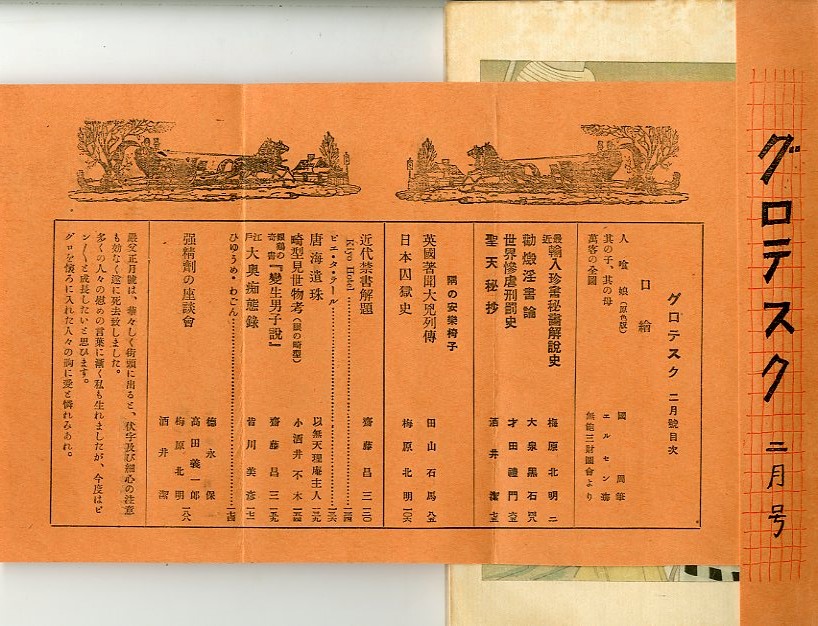 グロテスク 二月号
グロテスク 二月號目次
口繪
人喰娘(原色版) 國周筆
其の子、其の母 エルセン畫
萬客の全圖 無能三財圖會より
最近輸入珍書秘畫解說史 梅原北明 二
勸燬淫書論 大泉黒石 四八
世界慘虐刑罰史 才田禮門 六五
聖天秘抄 酒井潔 七五
隅の安樂椅子
英國著聞大兇列傳 田山石馬 八五
日本囚獄史 梅原北明 一〇六
近代禁書解題 齋藤昌三 一二〇
Kriyo Hotel
ピエ・タ・テール
唐海遺珠 以無天理庵主人
畸型見世物考(眼の畸型) 小酒井不木 一五四
奇書『變生男子說』 齋藤昌三
江戶大奥痴態錄 皆川美彦
ひゆうめ・わごん
强精劑の座談會
德永保
高田義一郎
梅原北明
酒井潔 一八八
嚴父正月號は、華々しく街頭に出ると、伏字及び細心の注意
も効なく遂に死去致しました。
多くの人々の慰めの言葉に漸く私も生れましたが、今度はピ
ン〳〵と成長したいと思ひます。
グロを懷ろに入れた人々の胸に愛と憐れみあれ。